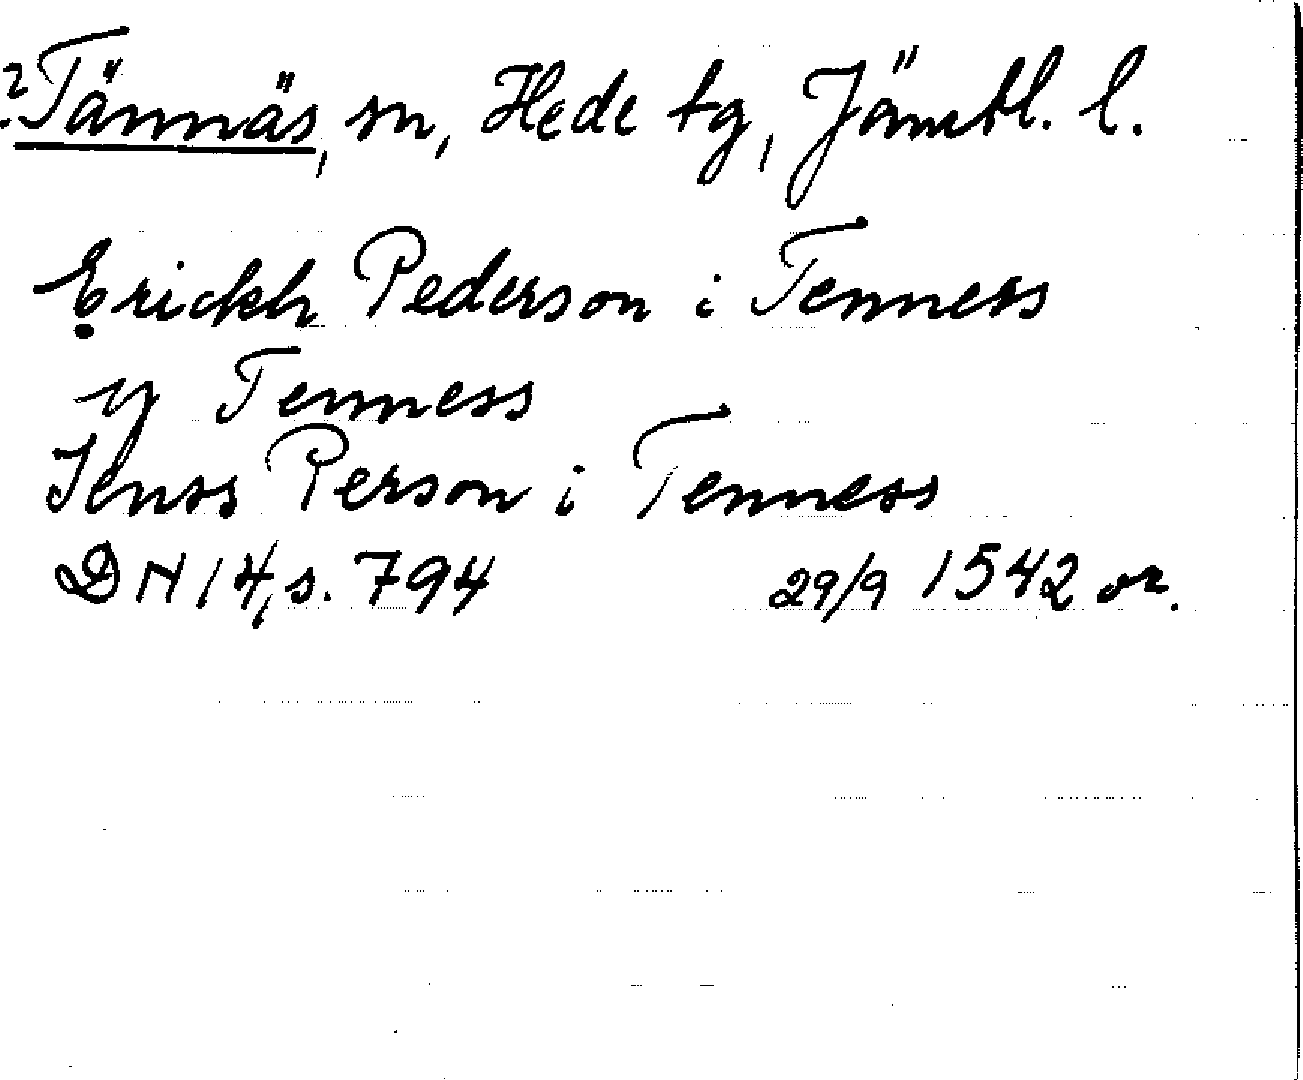 ?Tännäs, sn, Hede tg, Jämtl. l.
Erickh Pederson i Tenness
y Tenness
Jenss Person i Tenness
DN 14, s. 794 29/9 1542 or.